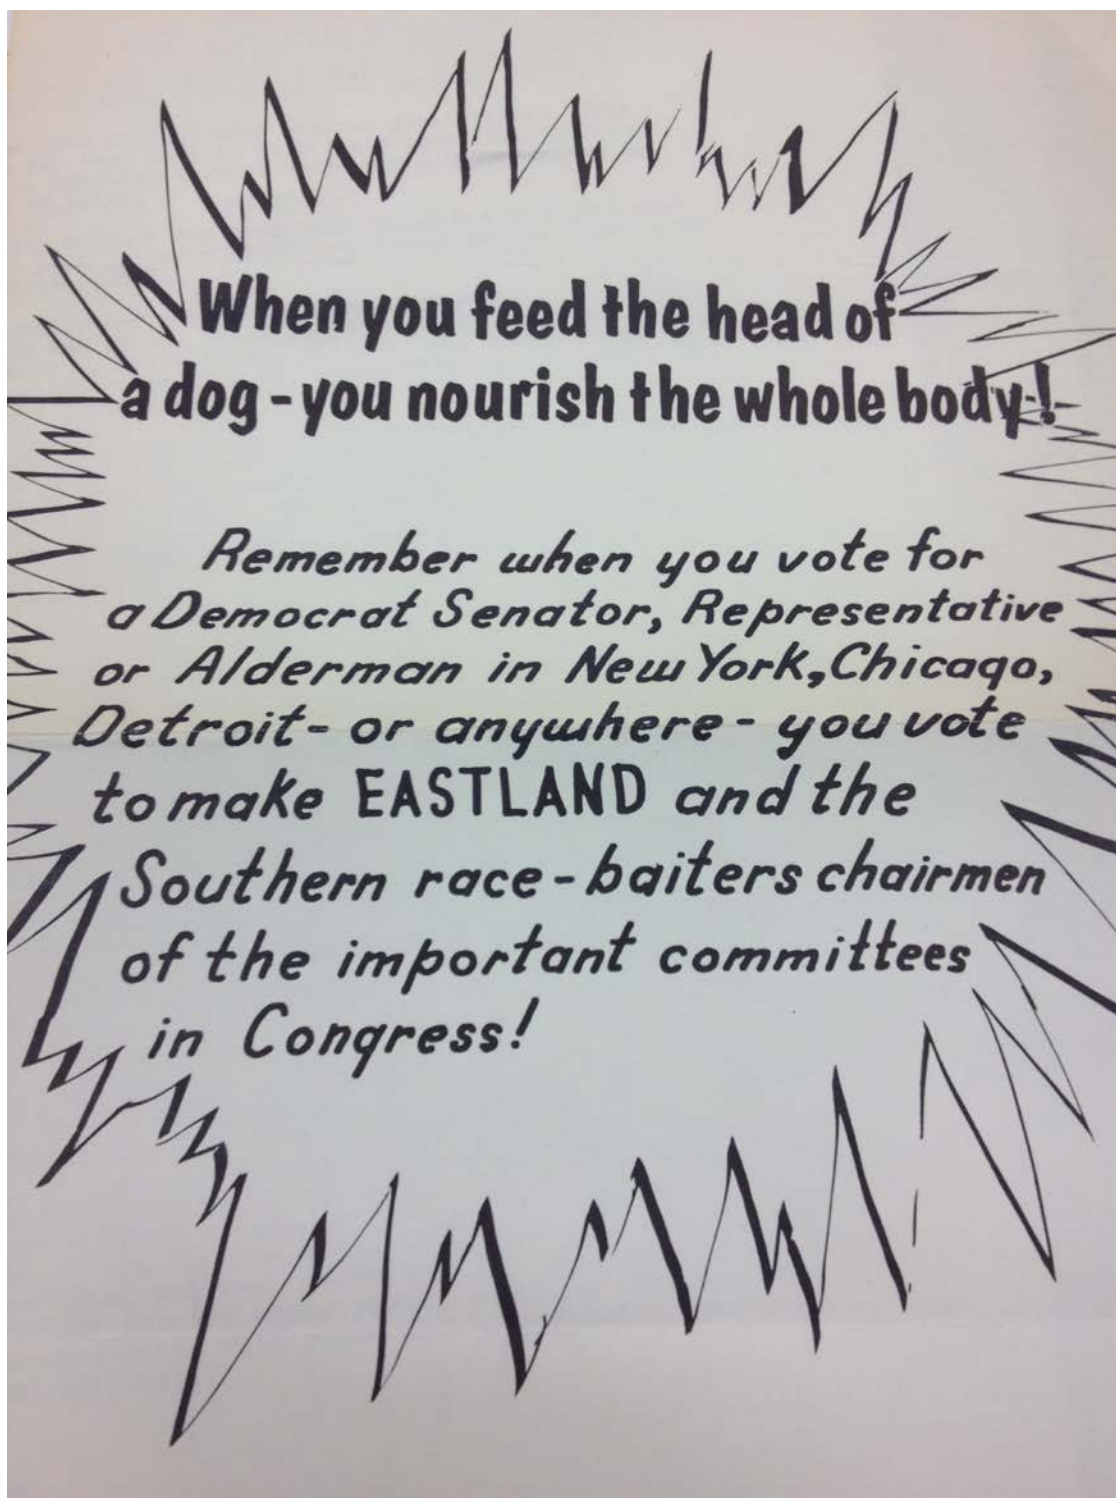 When you feed the head of
a dog - you nourish the whole body!
Remember when you vote for
a Democrat Senator, Representative
or Alderman in New York, Chicago,
Detroit - or anywhere - you vote
to make EASTLAND and the
Southern race-baiters chairmen
of the important committees
in Congress!